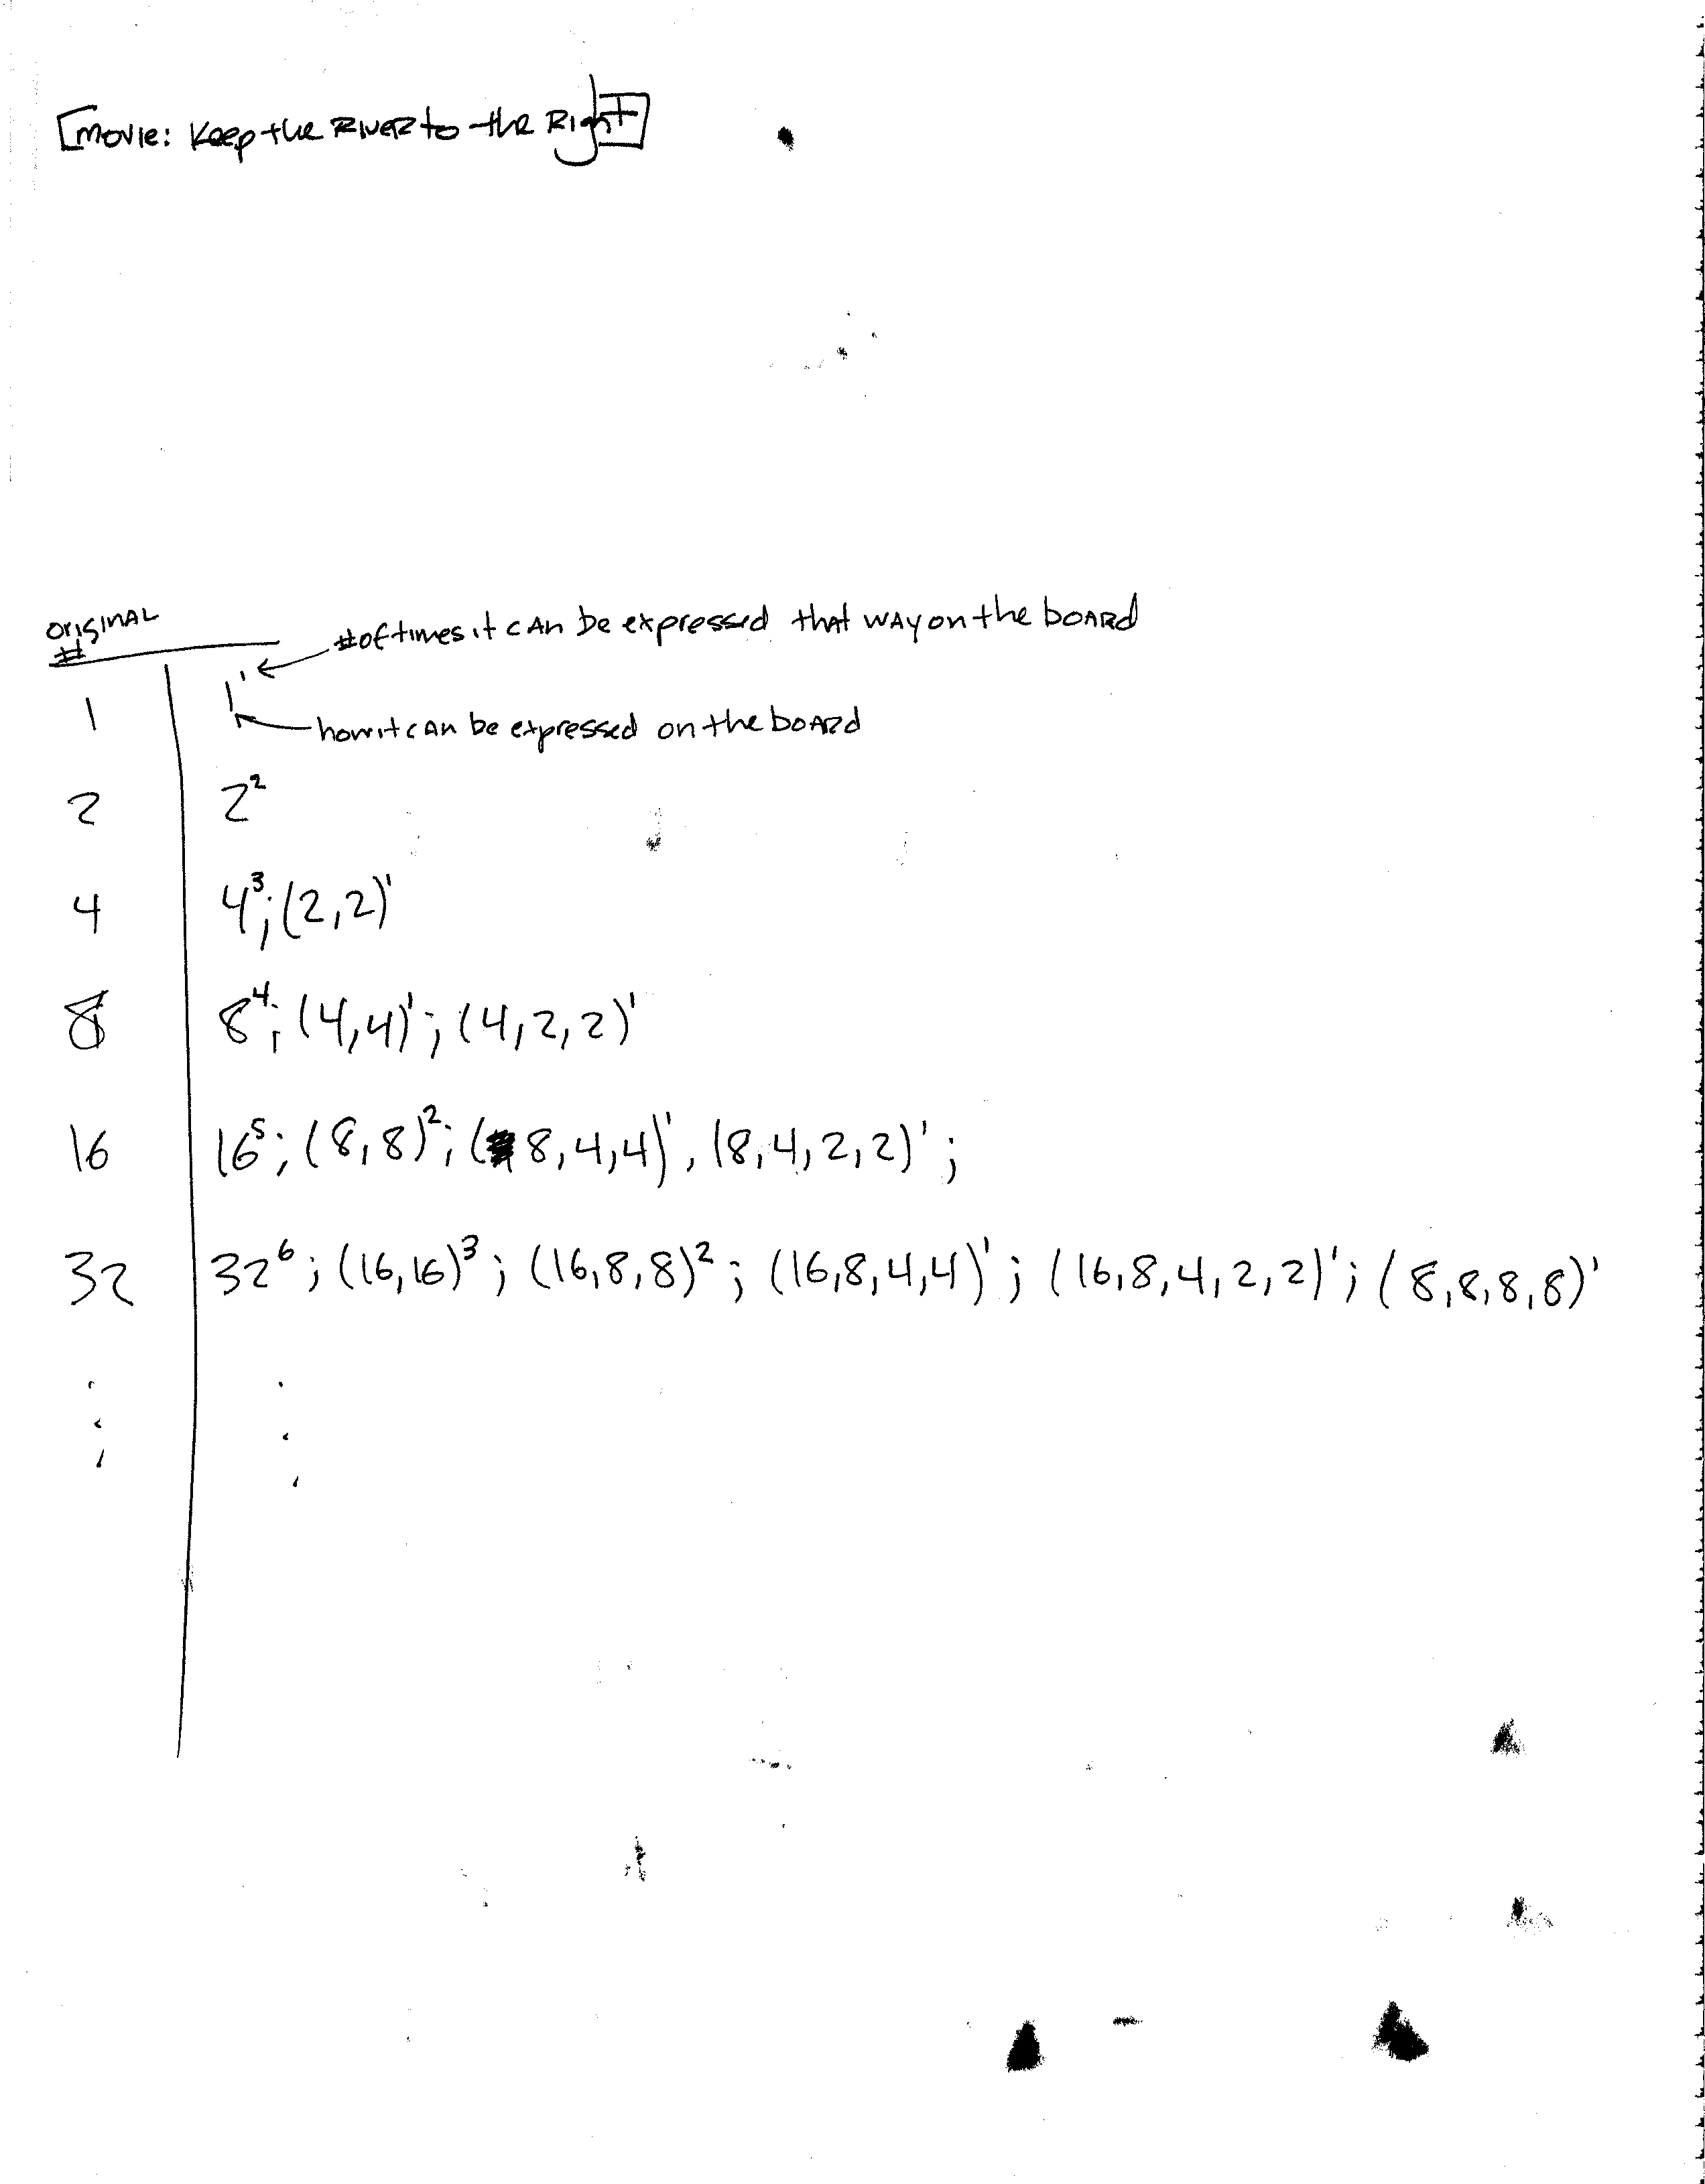 [Movie: Keep the River to the Right]
original
#
# of times it can be expressed that way on the board
1 1¹
how it can be expressed on the board
2 2²
4 4³; (2,2)¹
8 8⁴; (4,4)¹; (4,2,2)¹
16 16⁵; (8,8)²; (8,4,4)¹, (8,4,2,2)¹;
32 32⁶; (16,16)³; (16,8,8)²; (16,8,4,4)¹; (16,8,4,2,2)¹; (8,8,8,8)¹